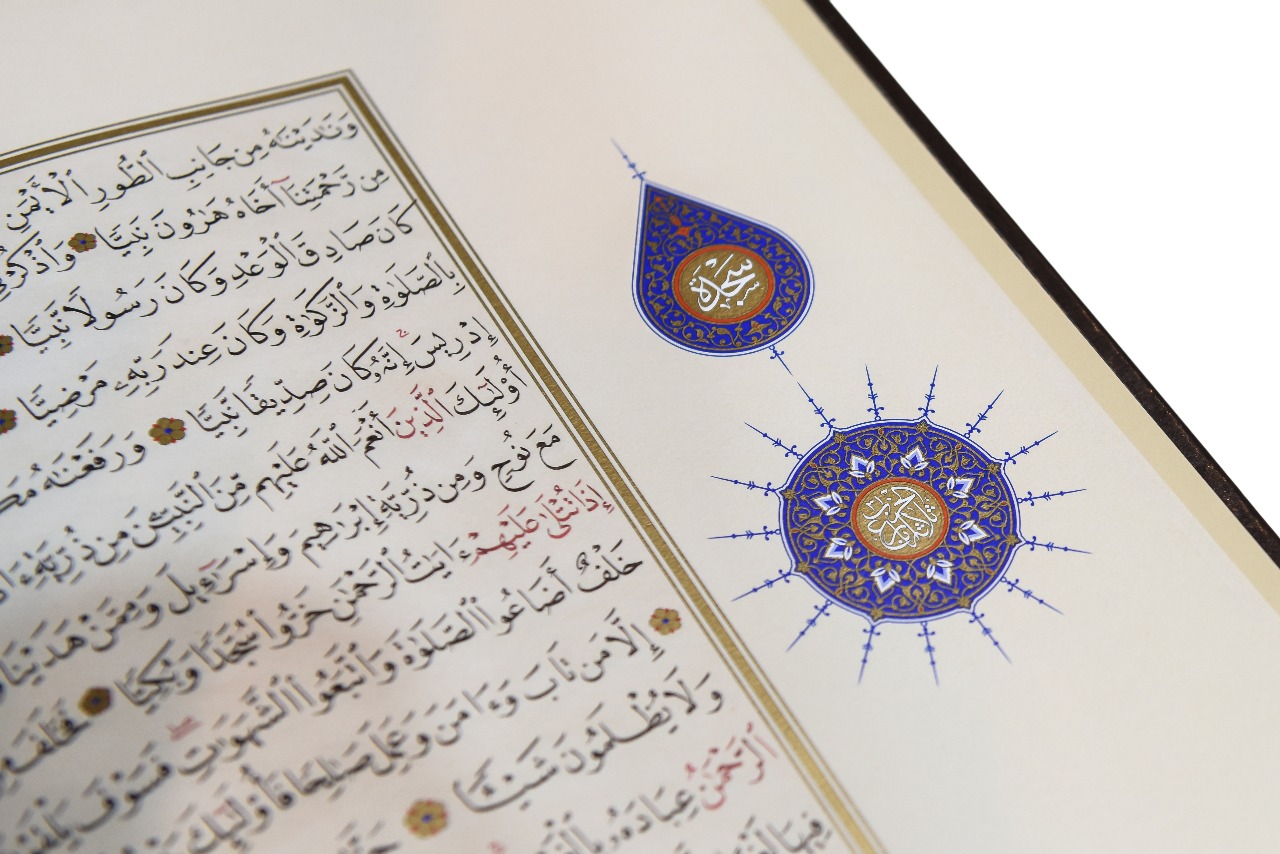 وَنَـٰدَيْنَـٰهُ مِن جَانِبِ ٱلطُّورِ ٱلْأَيْمَنِ
مِن رَّحْمَتِنَآ أَخَاهُ هَـٰرُونَ نَبِيًّا وَٱذْكُرْ فِى
كَانَ صَادِقَ ٱلْوَعْدِ وَكَانَ رَسُولًا نَّبِيًّا
بِٱلصَّلَوٰةِ وَٱلزَّكَوٰةِ وَكَانَ عِندَ رَبِّهِۦ مَرْضِيًّا
إِدْرِيسَ إِنَّهُۥ كَانَ صِدِّيقًا نَّبِيًّا وَرَفَعْنَـٰهُ
أُو۟لَـٰٓئِكَ ٱلَّذِينَ أَنْعَمَ ٱللَّهُ عَلَيْهِم مِّنَ ٱلنَّبِيِّـۧنَ مِن ذُرِّيَّةِ
مَعَ نُوحٍ وَمِن ذُرِّيَّةِ إِبْرَٰهِيمَ وَإِسْرَٰٓءِيلَ وَمِمَّنْ هَدَيْنَا
إِذَا تُتْلَىٰ عَلَيْهِمْ ءَايَـٰتُ ٱلرَّحْمَـٰنِ خَرُّوا۟ سُجَّدًا وَبُكِيًّا فَخَلَفَ
خَلْفٌ أَضَاعُوا۟ ٱلصَّلَوٰةَ وَٱتَّبَعُوا۟ ٱلشَّهَوَٰتِ فَسَوْفَ يَلْقَوْنَ
إِلَّا مَن تَابَ وَءَامَنَ وَعَمِلَ صَـٰلِحًا فَأُو۟لَـٰٓئِكَ
وَلَا يُظْلَمُونَ شَيْـًٔا
ٱلرَّحْمَـٰنُ عِبَادَهُۥ
فِيهَا
سجدة